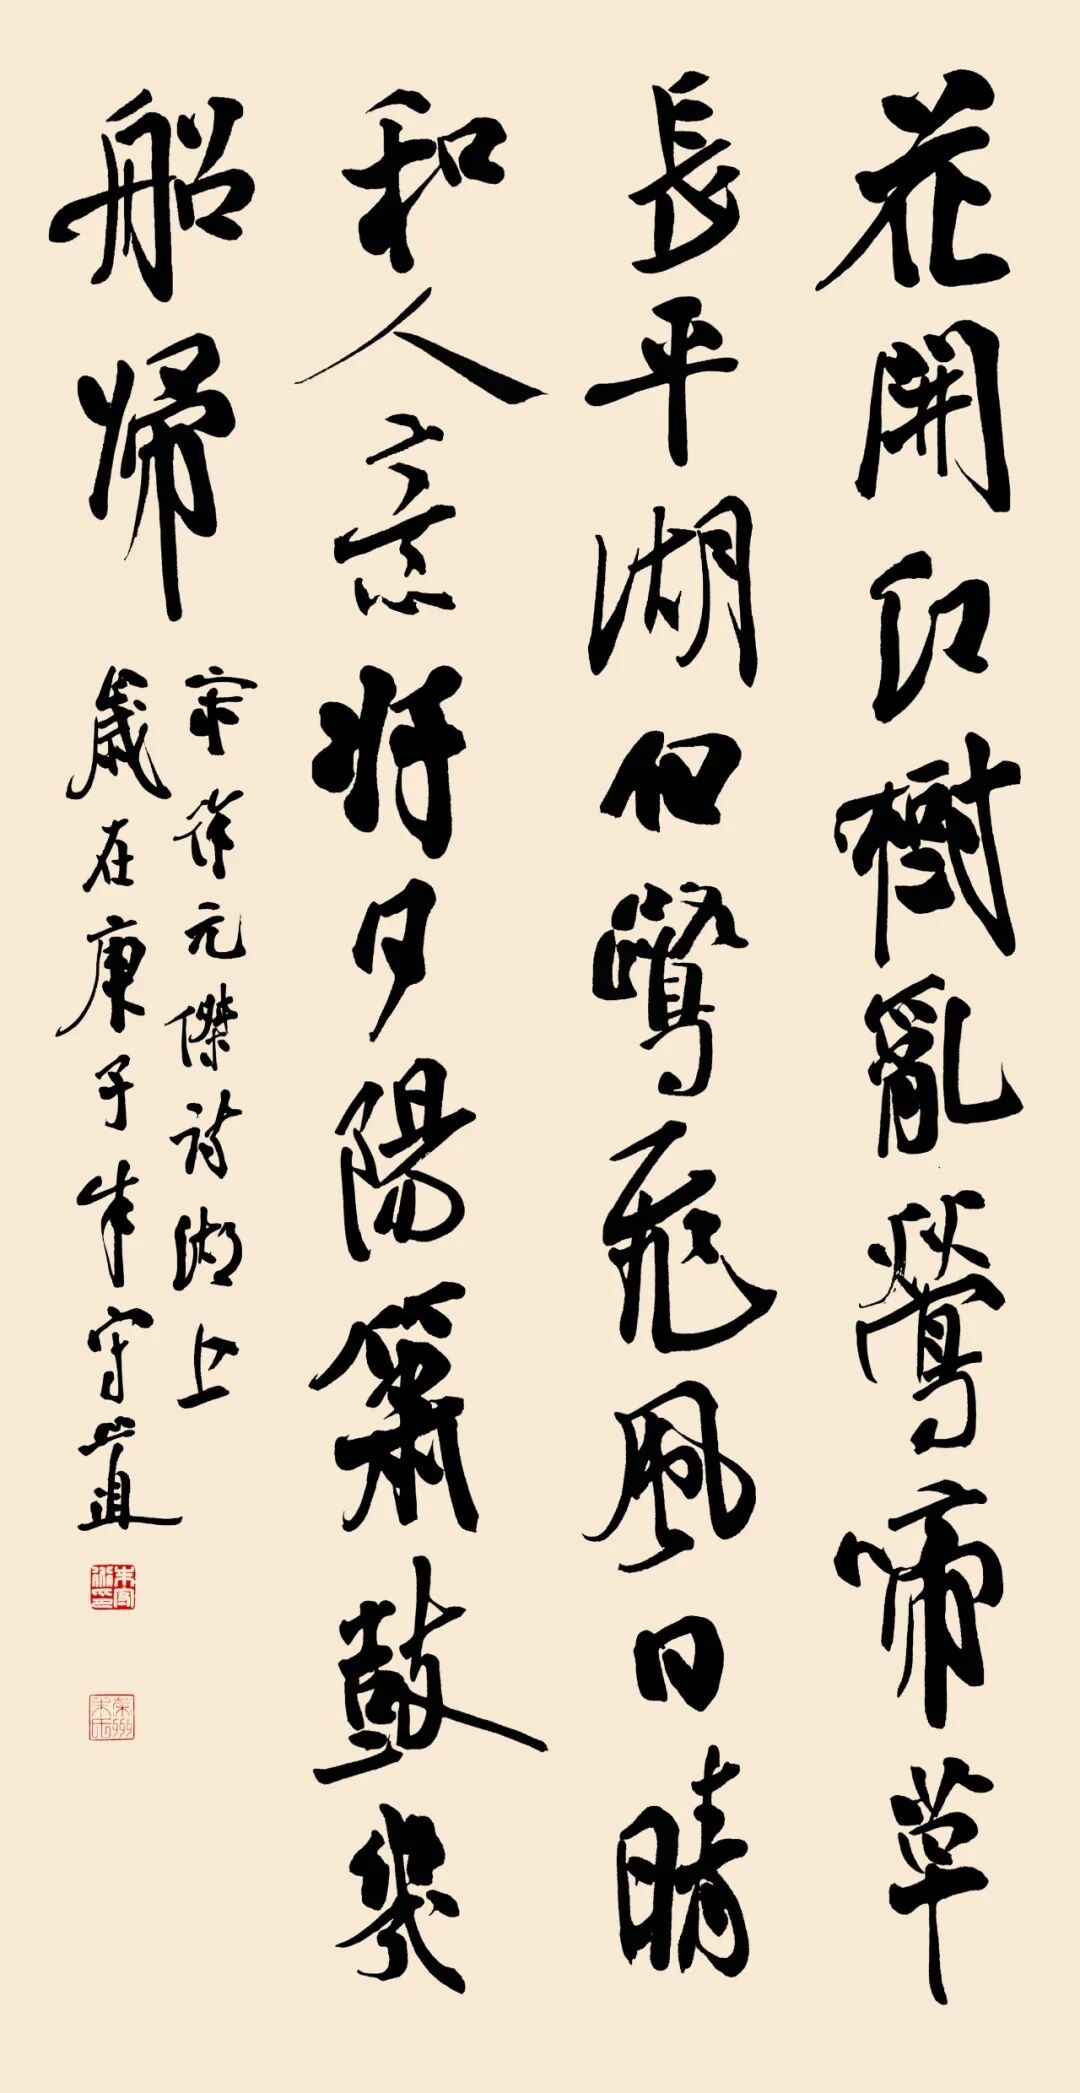 花開紅樹亂鶯啼草
長平湖白鷺飛風日晴
和人意好夕陽簫鼓幾
船歸
宋徐元傑詩湖上
歲在庚子年守道